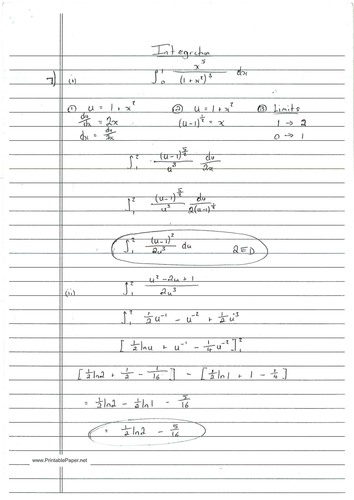 Integration
7) (i) ∫₀¹ x⁵/(1+x²)³ dx
① u = 1+x² ② u = 1+x² ③ Limits
du/dx = 2x (u-1)^(1/2) = x 1 → 2
dx = du/2x 0 → 1
∫₁² (u-1)^(5/2)/u³ du/2x
∫₁² (u-1)^(5/2)/u³ du/2(u-1)^(1/2)
∫₁² (u-1)²/2u³ du QED
(ii) ∫₁² u²-2u+1/2u³
∫₁² ½u⁻¹ - u⁻² + ½u⁻³
[½lnu + u⁻¹ - ¼u⁻²]₁²
[½ln2 + ½ - 1/16] - [½ln1 + 1 - ¼]
= ½ln2 - ½ln1 - 5/16
= ½ln2 - 5/16
www.PrintablePaper.net